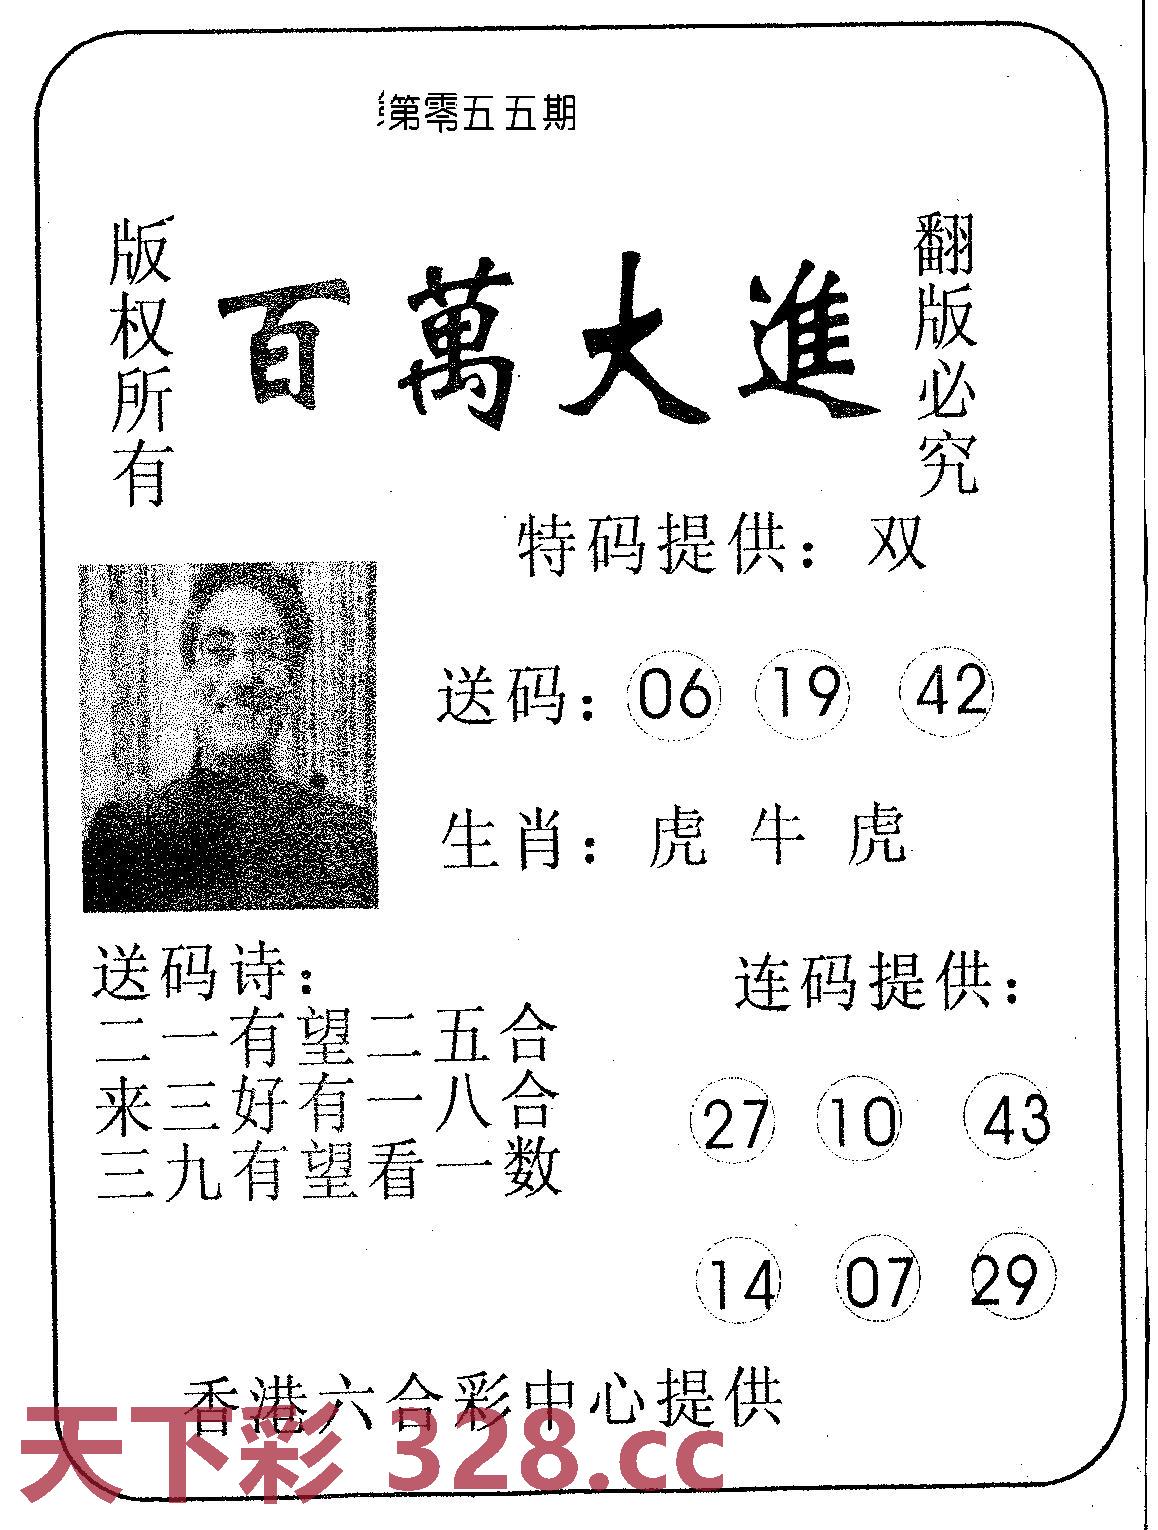 第零五五期
版权所有
百萬大進
翻版必究
特码提供：双
送码：06 19 42
生肖：虎 牛 虎
送码诗：
二一有望二五合
来三好有一八合
三九有望看一数
连码提供：
27 10 43
14 07 29
香港六合彩中心提供
天下彩 328.cc